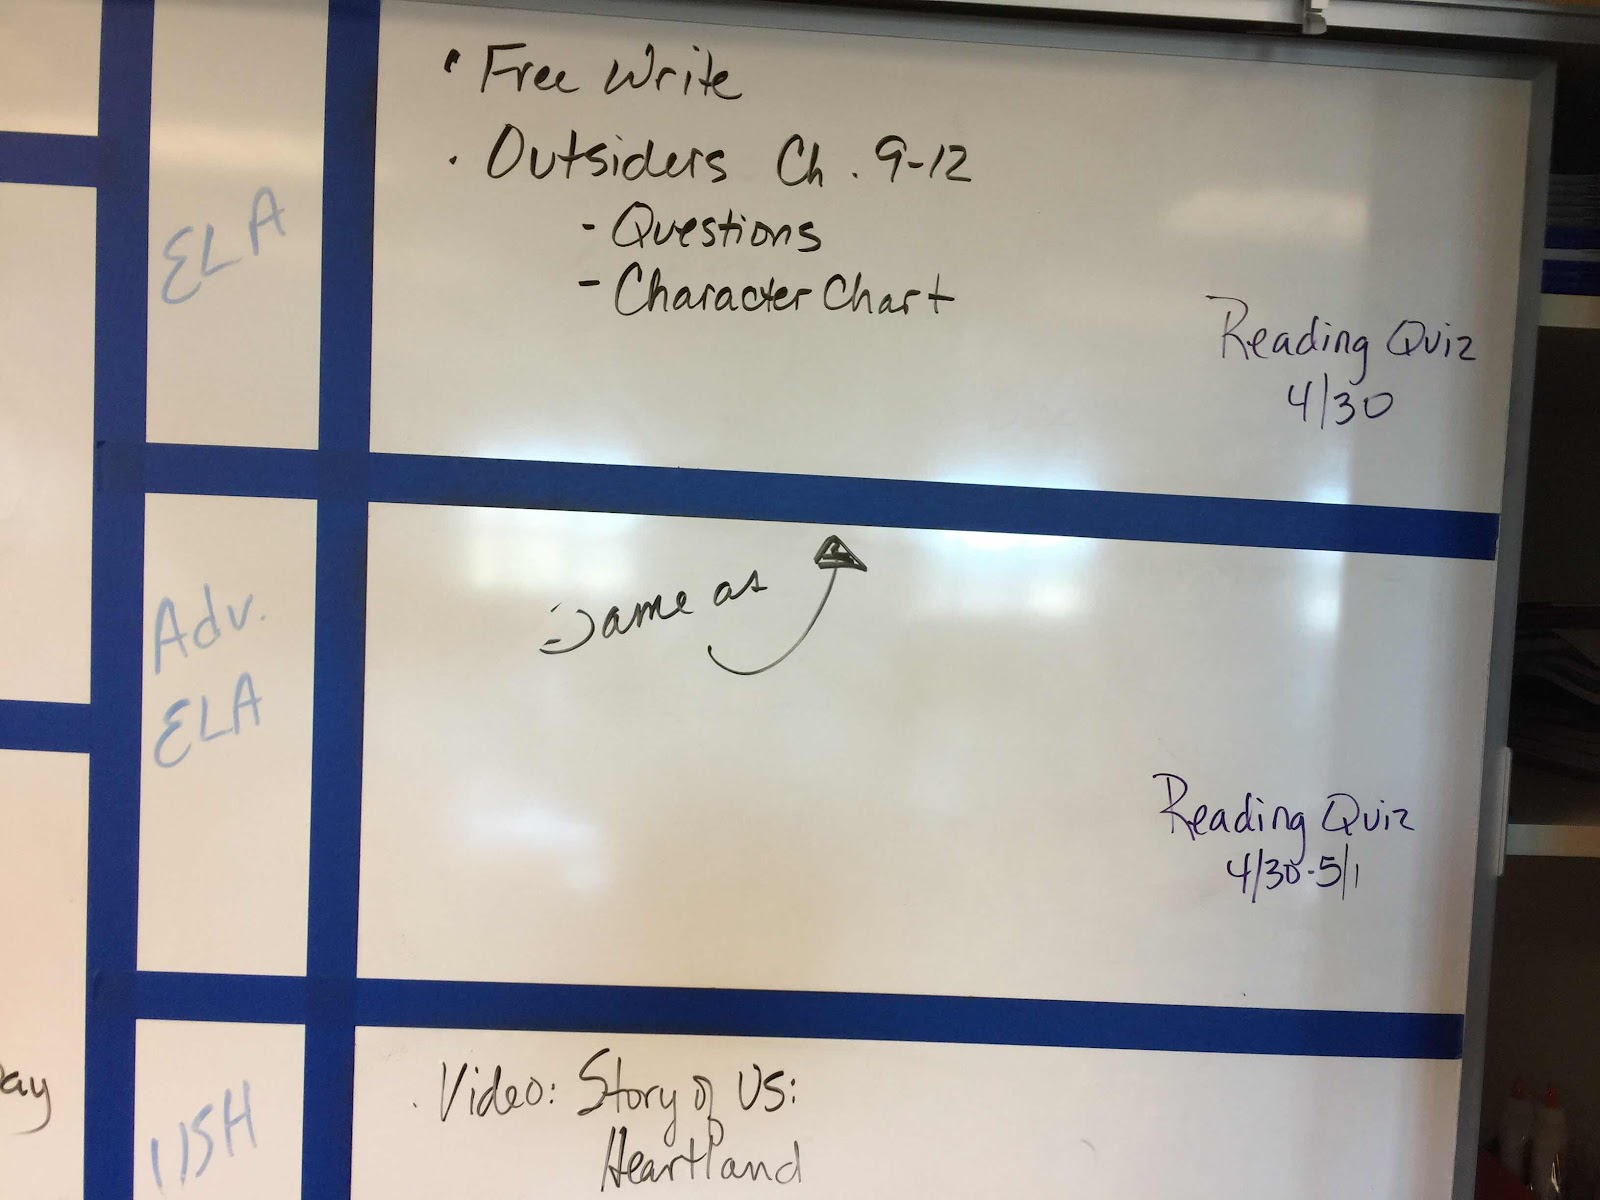 ELA
• Free Write
• Outsiders Ch. 9-12
- Questions
- Character Chart
Reading Quiz
4/30
Adv.
ELA
- Same as
Reading Quiz
4/30-5/1
USH
• Video: Story of US:
Heartland